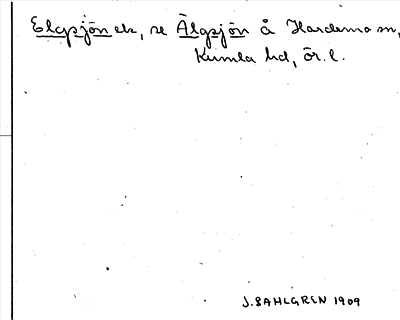 Elgsjön ek, se Älgsjön å Hardemo sn,
Kumla hd, ör. l.
J. SAHLGREN 1909